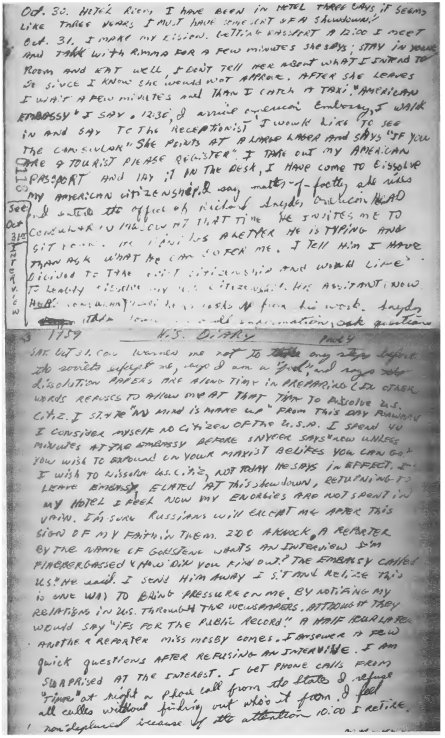 Oct. 30. HOTEL ROOM I HAVE BEEN IN HOTEL THREE DAYS, IT SEEMS
LIKE THREE YEARS I MUST HAVE SOME SORT OF A SHOWDOWN!
Oct. 31. I MAKE MY DISION. GETTING PASSPORT A 12:00 I MEET
AND TALK WITH RIMMA FOR A FEW MINUTES SHE SAYS; STAY IN YOUR
ROOM AND EAT WELL, I DON'T TELL HER ABOUT WHAT I INTEND TO
DO SINCE I KNOW SHE WOULD NOT APPROVE. AFTER SHE LEAVES
I WAIT A FEW MINUTES AND THAN I CATCH A TAXI, "AMERICAN
EMBASSY" I SAY. 12:30, I arrive American Embassy, I WALK
IN AND SAY TO THE RECEPTIONIST "I WOULD LIKE TO SEE
THE CONSULAR" SHE POINTS AT A LARGE LAGER AND SAYS "IF YOU
ARE A TOURIST PLEASE REGISTER" I TAKE OUT MY AMERICAN
PASSPORT AND LAY IT ON THE DESK, I HAVE COME TO DISSOLVE
MY AMERICAN CITIZENSHIP, I say matter-of-factly she rises
the office of Richard Snyder American HEAD
CONSULAR IN MOSCOW AT THAT TIME HE INVITES ME TO
SIT HE FINISHES A LETTER HE IS TYPING AND
THAN ASK WHAT HE CAN DO FER ME. I TELL HIM I HAVE
DICIDED TO TAKE CITIZENSHIP AND WOULD LIKE
TO LEAGLY U.S. CITIZENSHIP. HIS ASSITANT, NOW
HEAD looks up from his work. Snyder
information, ask questions
See
Oct
31st
INTERVIEW
1959 H.S. DIARY
SAT OCT 31. CON WARNES me not to take any steps before
the soviets except me, says I am a "fool", and says the
dissolution PAPERS ARE ALONG TIME IN PREPARING (IN OTHER
WORDS REFUSES TO ALLOW ME AT THAT TIME TO DISSOLVE U.S.
CITIZ. I STATE "MY MIND IS MAKE UP" FROM THIS DAY FORWARD
I CONSIDER MYSELF NO CITIZEN OF THE U.S.A. I SPEND 40
MINUTES AT THE EMBASSY BEFORE SNYDER SAYS "NOW UNLESS
YOU WISH TO EXPOUND ON YOUR MAXIST BELIFES YOU CAN GO."
I WISH TO DISSOLVE U.S. CITIZ. NOT TODAY HE SAYS IN EFFECT. I
LEAVE EMBASSY, ELATED AT THIS SHOWDOWN, RETURNING TO
MY HOTEL I FEEL NOW MY ENORGIES ARE NOT SPENT IN
VAIN. I'M SURE RUSSIANS WILL EXCEPT ME AFTER THIS
SIGN OF MY FAITH IN THEM. 2:00 A KNOCK, A REPORTER
BY THE NAME OF GOLDSTENE WANTS AN INTERVIEW I'M
FLABBERGASSED "HOW DID YOU FIND OUT? THE EMBASSY CALLED
US." HE said. I SEND HIM AWAY I SIT AND RELIZE THIS
IS ONE WAY TO BRING PRESSURE ON ME. BY NOTIFING MY
RELATIONS IN U.S. THROUGH THE NEWSPAPERS. ALTHOUGH THEY
WOULD SAY "ITS FOR THE PUBLIC RECORD." A HALF HOUR LATER
ANOTHER REPORTER MISS MOSBY COMES. I ANSWER A FEW
quick QUESTIONS AFTER REFUSING AN INTERVIVE. I AM
SURPRISED AT THE INTEREST. I GET PHONE CALLS FROM
"TIME" at night A phone call from the States I refuse
all calles without finding out who's it from. I feel
non-deplused because of the attention 10:00 I RETIRE.